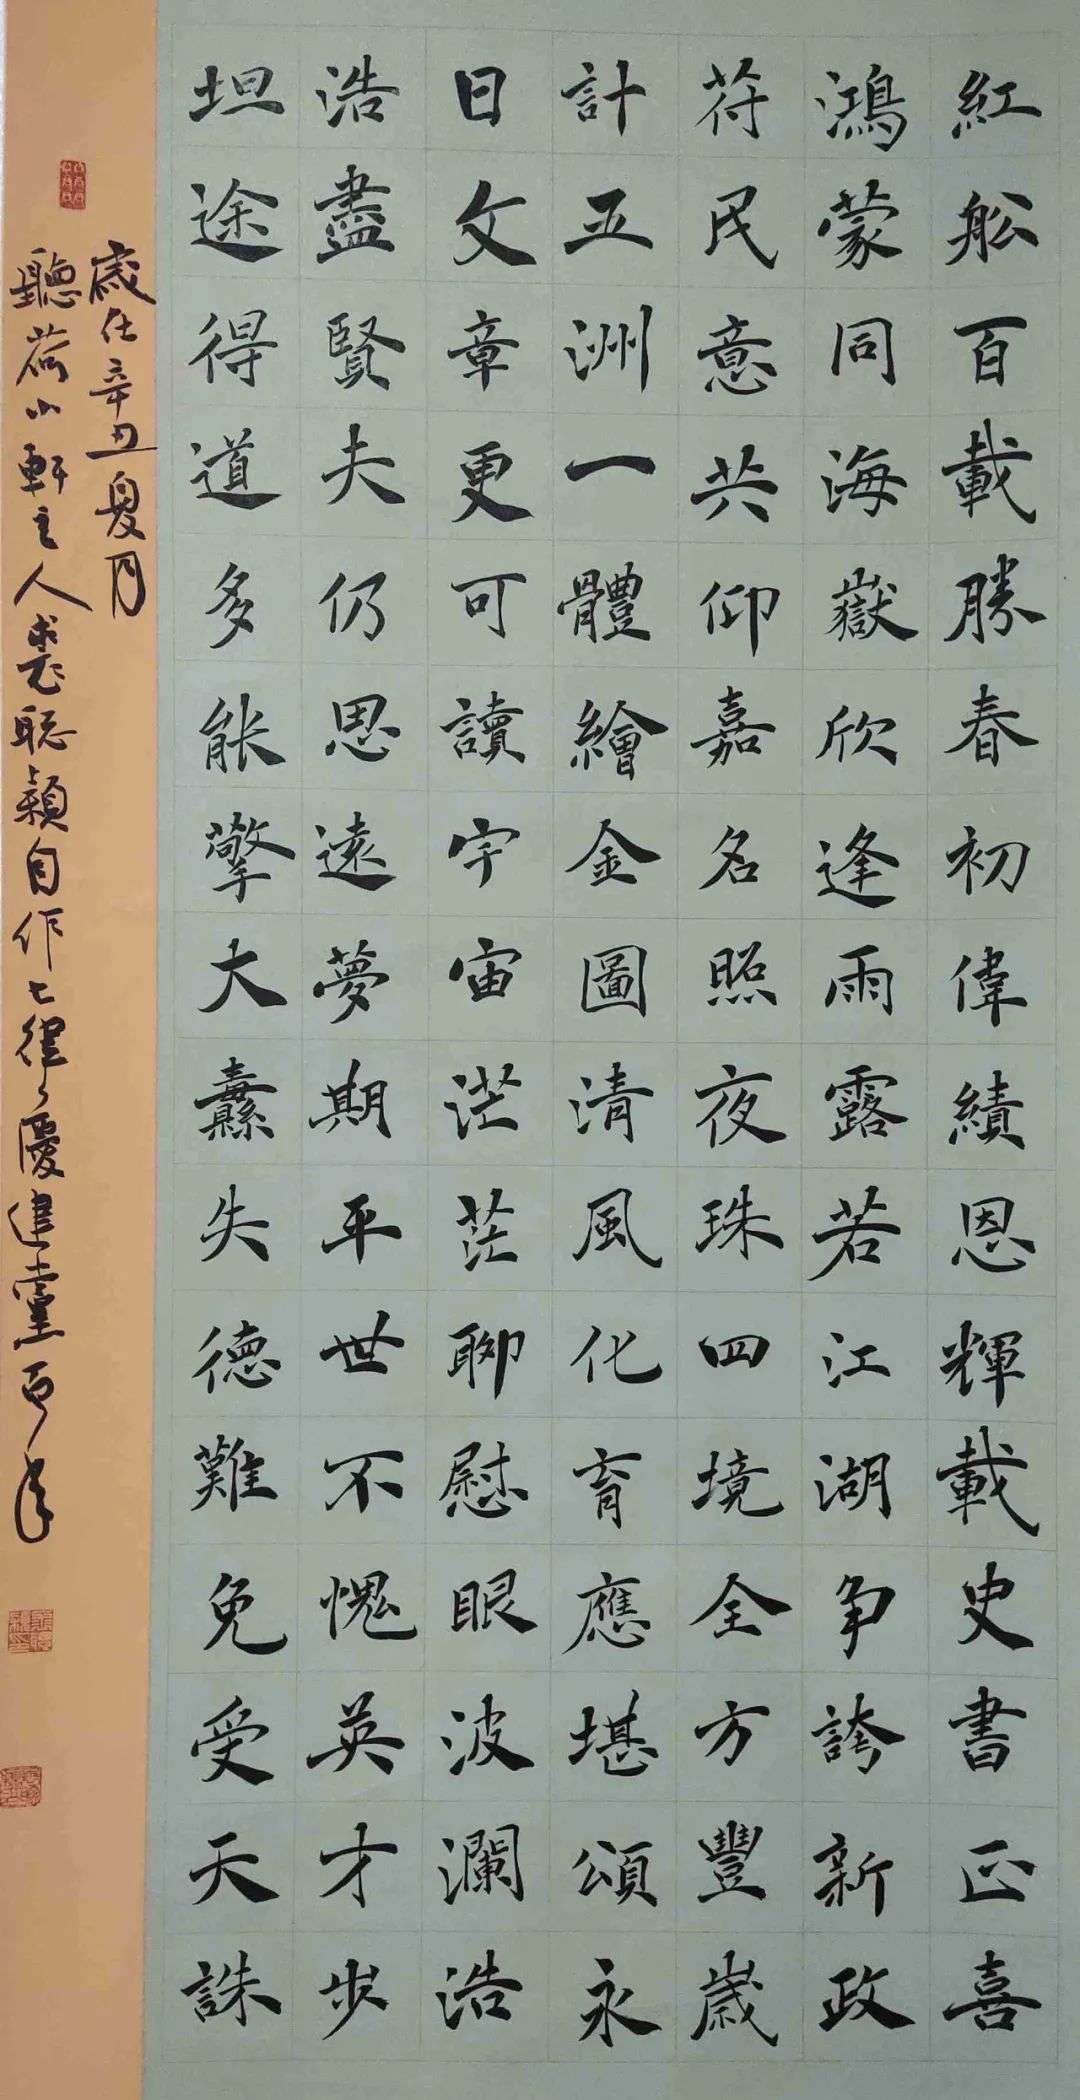 紅舩百載勝春初偉績恩輝載史書正喜
鴻蒙同海嶽欣逢雨露若江湖争誇新政
符民意共仰嘉名照夜珠四境全方豐歲
計五洲一體繪金圖清風化育應堪頌永
日文章更可讀宇宙茫茫聊慰眼波瀾浩
浩盡賢夫仍思遠夢期平世不愧英才步
坦途得道多能擎大纛失德難免受天誅
歲在辛丑夏月
聽荷小軒主人裘聪穎自作七律以慶建黨百年